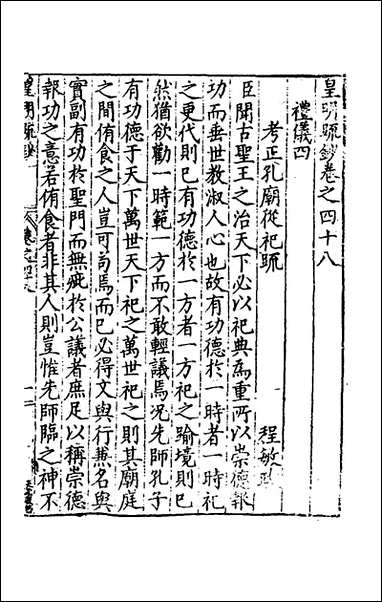 皇明疏鈔卷之四十八
禮儀四
考正孔廟從祀疏
程敏政
臣聞古聖王之治天下必以祀典為重所以崇德報
功而垂世教淑人心也故有功德於一時者一時祀
之更代則已有功德於一方者一方祀之踰境則已
然猶欲勸一時範一方而不敢輕議焉况先師孔子
有功德于天下萬世天下祀之萬世祀之則其廟庭
之間侑食之人豈可苟焉而已必得文與行兼名與
實副有功於聖門而無疵於公議者庶足以稱崇德
報功之意若侑食者非其人則豈惟先師臨之神不